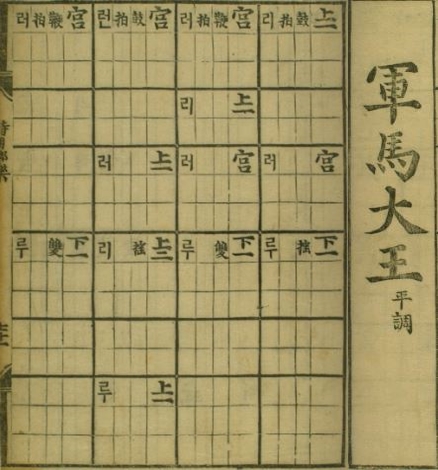 軍馬大王 平調
上一 鼓 拍 리
宮 러
下一 搖 루
宮 鞭 拍 러
上一 리
宮 러
下一 雙 루
宮 鼓 拍 런
上一 러
上二 搖 리
上一 루
宮 鞭 拍 러
下一 雙 루